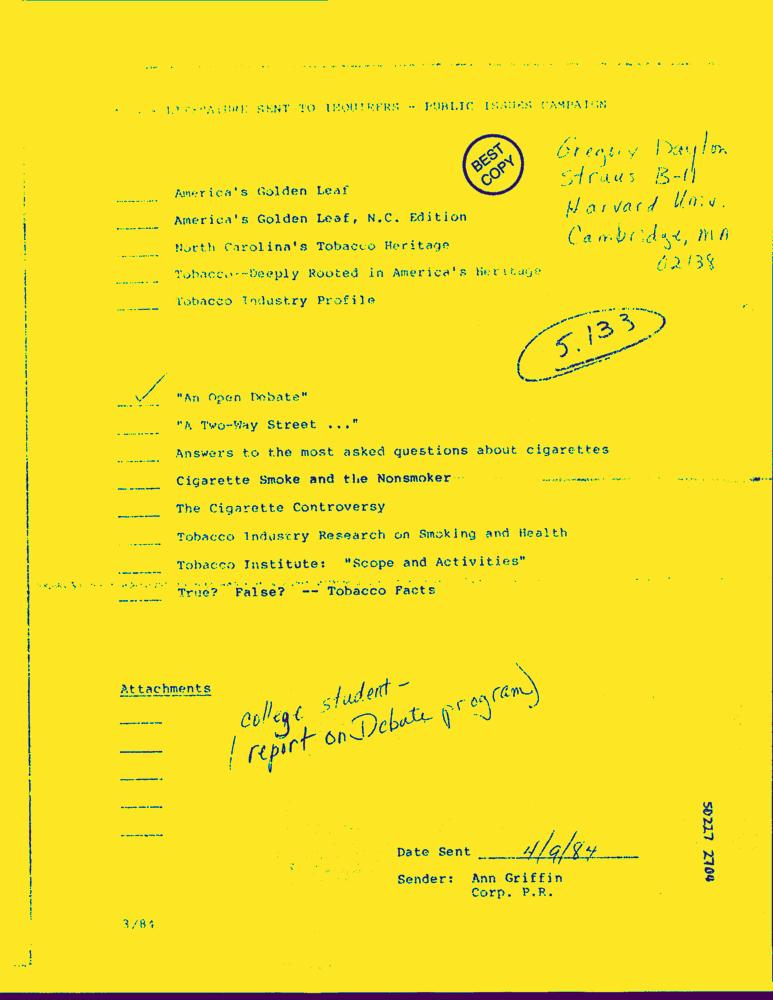 LITERATURE SENT TO INQUIRERS - PUBLIC ISSUES CAMPAIGN
BEST
COPY
Gregory Daylon
Straus B-11
Harvard Univ.
Cambridge, MA
02138
America's Golden Leaf
America's Golden Leaf, N.C. Edition
North Carolina's Tobacco Heritage
Tobacco--Deeply Rooted in America's Heritage
Tobacco Industry Profile
5.133
"An Open Debate"
"A Two-Way Street ..."
Answers to the most asked questions about cigarettes
Cigarette Smoke and the Nonsmoker
The Cigarette Controversy
Tobacco Industry Research on Smoking and Health
Tobacco Institute: "Scope and Activities"
True? False? -- Tobacco Facts
Attachments
college student -
( report on Debate program)
Date Sent 4/9/84
Sender: Ann Griffin
Corp. P.R.
50227 2704
3/84